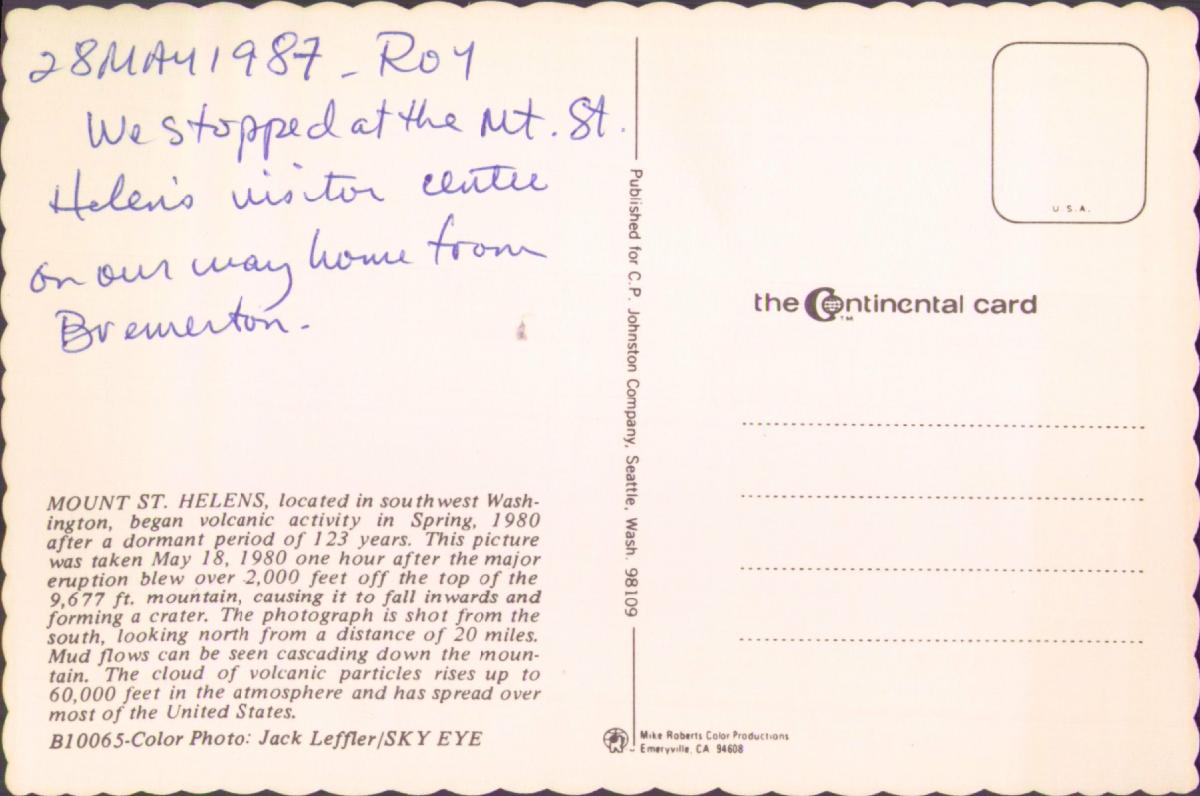 28MAY1987 - ROY
We stopped at the Mt. St.
Helens visitor centre
on our way home from
Bremerton.
MOUNT ST. HELENS, located in southwest Wash-
ington, began volcanic activity in Spring, 1980
after a dormant period of 123 years. This picture
was taken May 18, 1980 one hour after the major
eruption blew over 2,000 feet off the top of the
9,677 ft. mountain, causing it to fall inwards and
forming a crater. The photograph is shot from the
south, looking north from a distance of 20 miles.
Mud flows can be seen cascading down the moun-
tain. The cloud of volcanic particles rises up to
60,000 feet in the atmosphere and has spread over
most of the United States.
B10065-Color Photo: Jack Leffler/SKY EYE
Published for C.P. Johnston Company, Seattle, Wash. 98109
Mike Roberts Color Productions
Emeryville, CA 94608
U.S.A.
the Continental card
TM